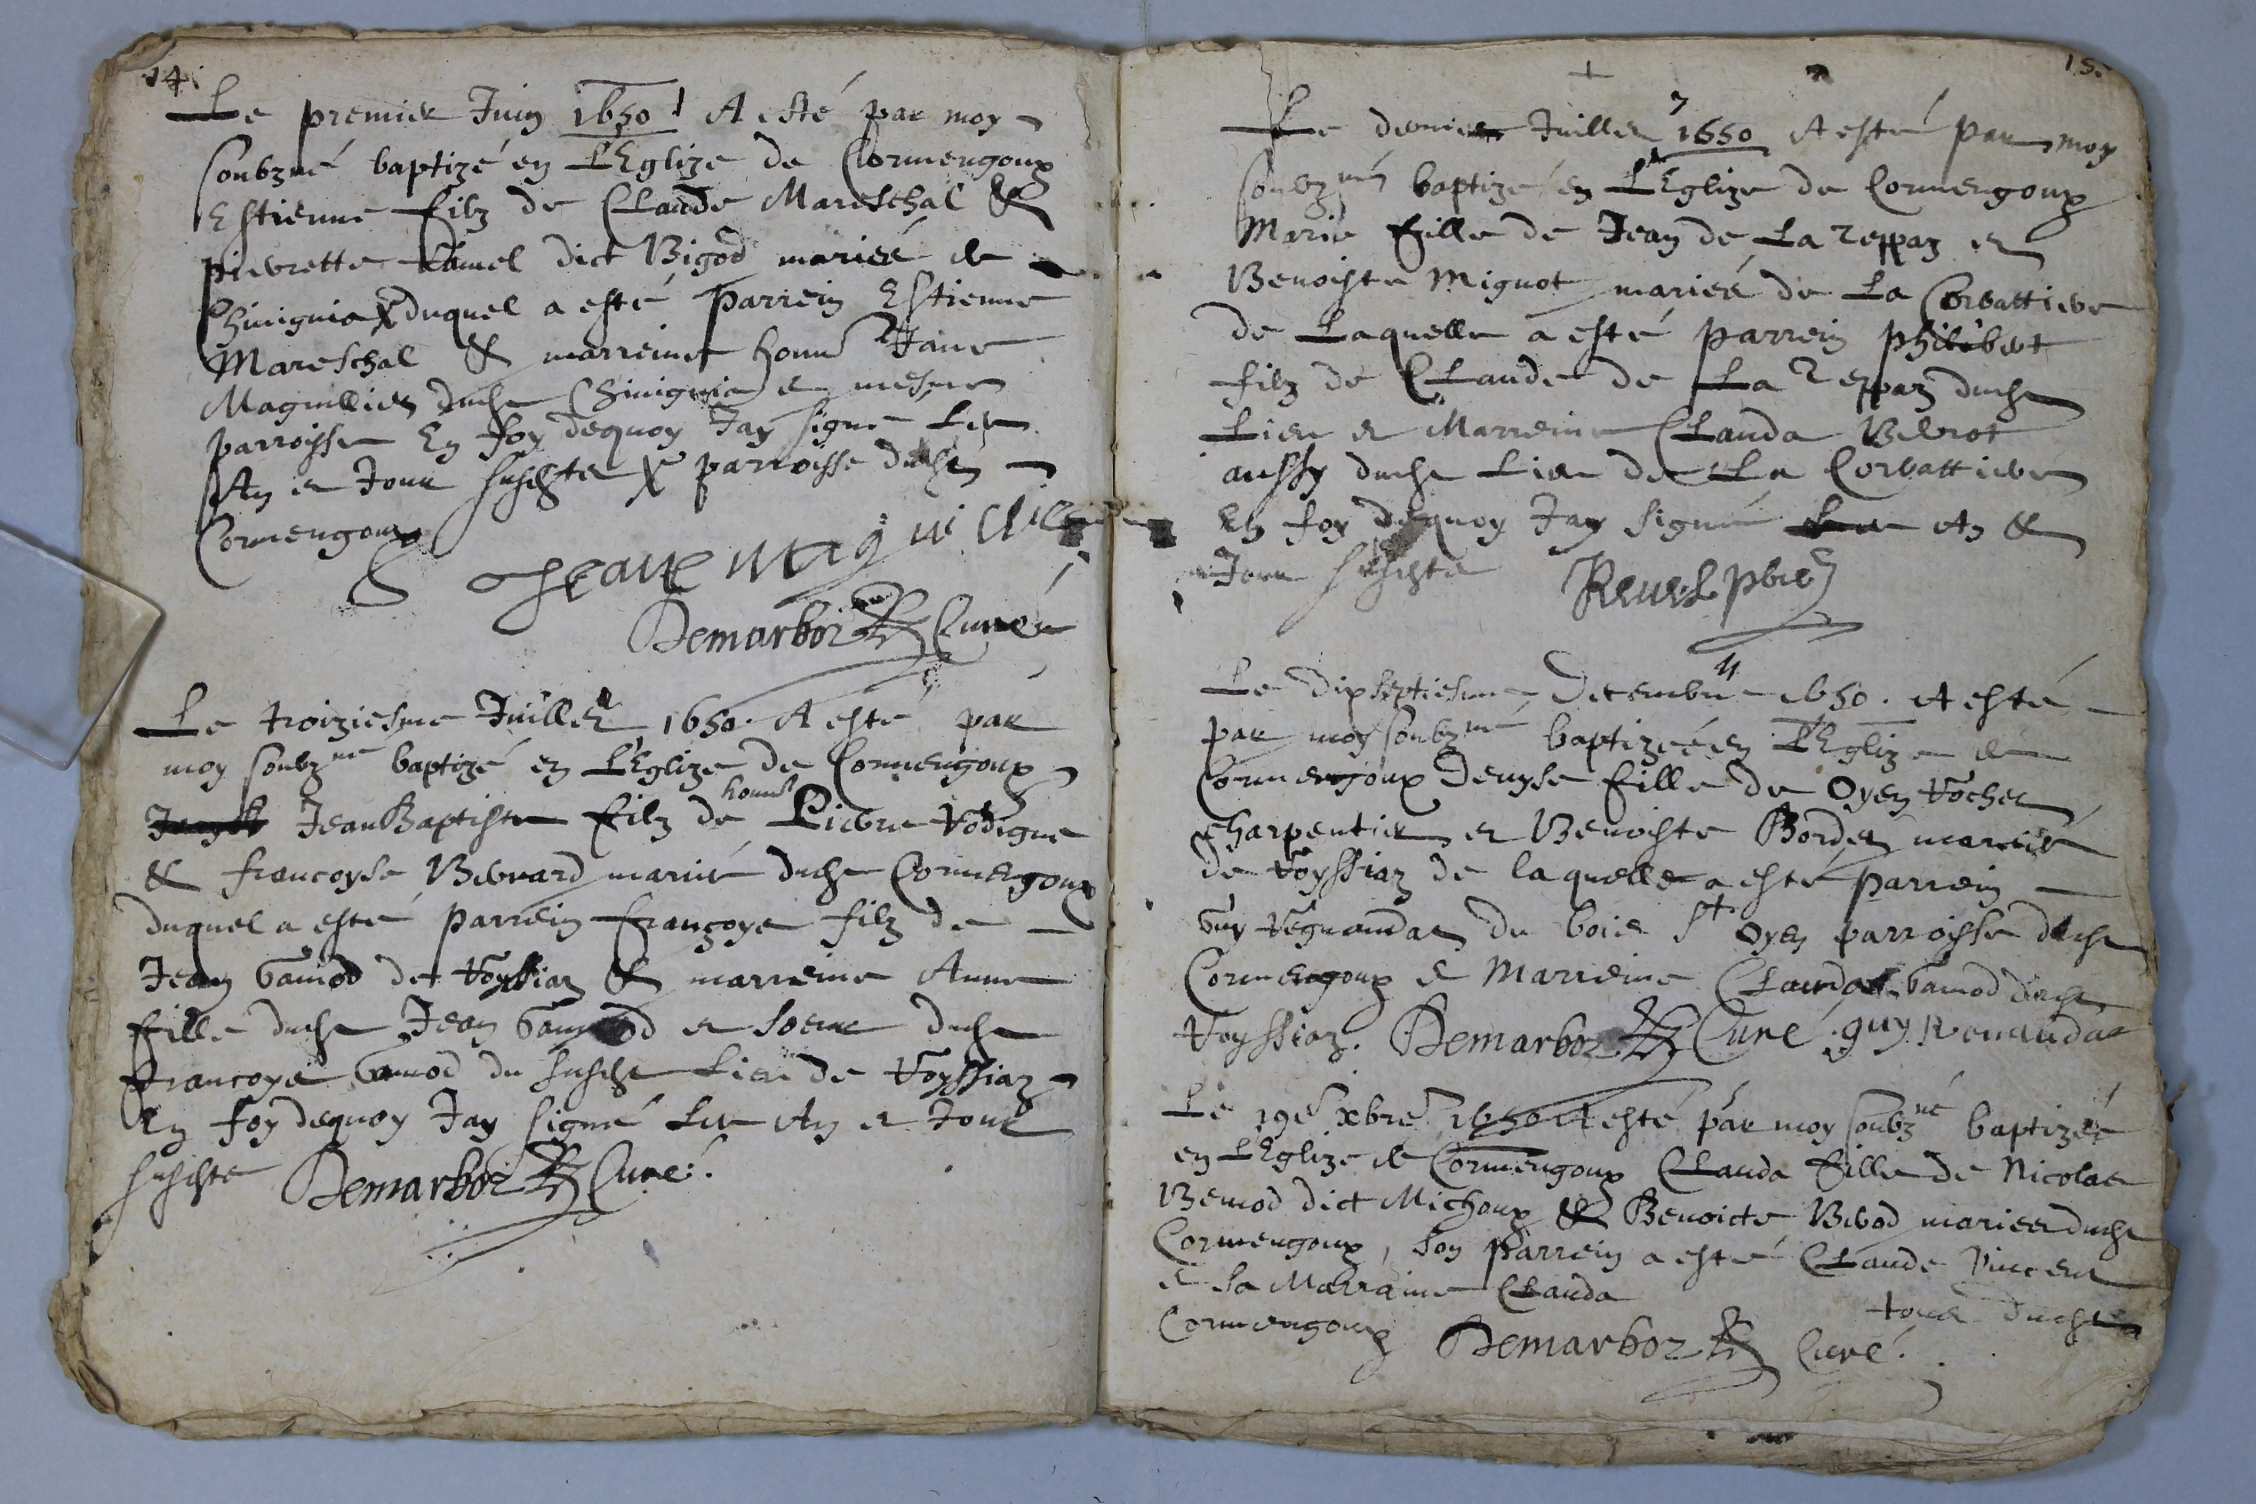 14.
Le premier Juin 1650 A esté par moy
soubzné baptizé en L'Eglize de Cormengoux
Estienne filz de Claude Mareschal &
pierrette Lamel dict Bigod mariés de
Chinignia duquel a esté parrein Estienne
Mareschal & marreine honn Jane
Magnillier dudit Chinignia et mesme
parroisse En foy dequoy Jay signé Les
An et Jour susdits parroisse dudit
Cormengoux
Demarboz Curé
Le troiziesme Juillet 1650. A esté par
moy soubzné baptizé en L'Eglize de Cormengoux
JeanBaptiste filz de honn Pierre Vodigue
& francoyse Bevrard mariés dudit Cormengoux
duquel a esté parrein françoys filz de
Jean Gamod de Voyssiaz & marreine Anne
fille dudit Jean Gamod et soeur dudit
francoys Gamod du susdit Lieu de Voyssiaz
En foy dequoy Jay signé Les An et Jour
susdits Demarboz Curé.
15.
Le dernier Juillet 1650 A esté par moy
soubzné baptizé en L'Eglize de Cormengoux
Marie fille de Jean de La Teppaz et
Benoiste Mignot mariés de La Corbattiere
de Laquelle a esté parrein philibert
filz de Claude de La Teppaz dudit
Lieu et Marreine Clauda Bevrot
aussy dudit Lieu de La Corbattiere
En foy dequoy Jay signé Les An &
Jour susdits Revel pbre
Le dixseptiesme Decembre 1650. A esté
par moy soubzné baptizée en L'Eglize de
Cormengoux Denyse fille de Oyen Vocher
charpentier et Benoiste Bordet mariés
de Voyssiaz de laquelle a esté parrein
Guy Regnaudat du bois St Oyen parroisse dudit
Cormengoux et Marreine Clauda Gamod dudit
Voyssiaz. Demarboz Curé. guy Renaudat
Le 19e xbre 1650 A esté par moy soubzné baptizée
en L'Eglize de Cormengoux Clauda fille de Nicolas
Bemod dict Michoux & Benoicte Bevod mariés dudit
Cormengoux, son parrein a esté Claude Vincent
et sa Marraine Clauda tous dudit
Cormengoux Demarboz Curé.